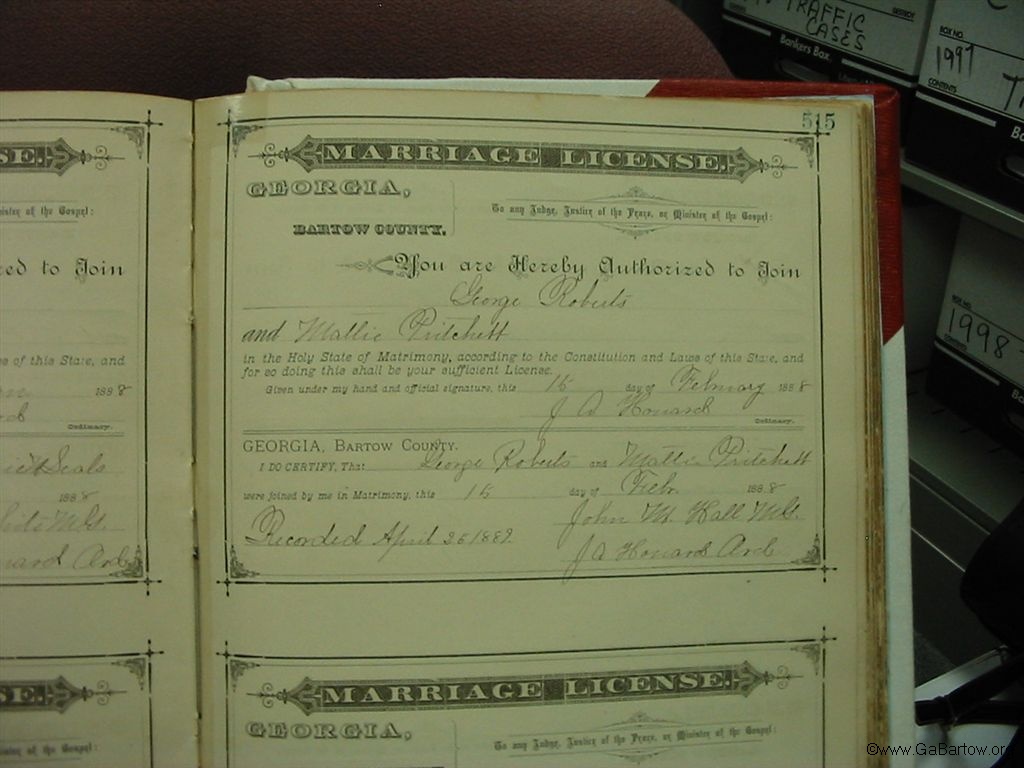 TRAFFIC
CASES
Bankers Box
BOX NO.
1997
CONTENTS
BOX NO.
1998
515
MARRIAGE LICENSE.
GEORGIA,
BARTOW COUNTY.
To any Judge, Justice of the Peace, or Minister of the Gospel:
You are Hereby Authorized to Join
George Roberts
and Mallie Pritchett
in the Holy State of Matrimony, according to the Constitution and Laws of this State, and
for so doing this shall be your sufficient License.
Given under my hand and official signature, this 15 day of February 1888
J A Howard
Ordinary.
GEORGIA, BARTOW COUNTY.
I DO CERTIFY, That George Roberts and Mallie Pritchett
were joined by me in Matrimony, this 15 day of Feb. 1888
John M. Hall M.G.
Recorded April 25 1889.
J A Howard Ord
MARRIAGE LICENSE.
GEORGIA,
To any Judge, Justice of the Peace, or Minister of the Gospel:
SE.
inister of the Gospel:
zed to Join
s of this State, and
1888
Ordinary.
Seals
1888
ward Ord
SE.
inister of the Gospel:
©www.GaBartow.or